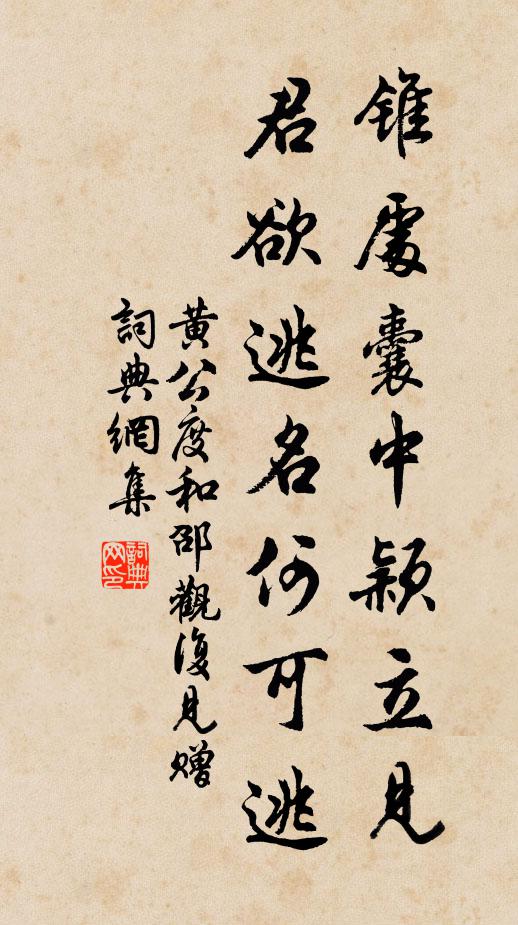 錐處囊中穎立見
君欲逃名何可逃
黃公度和邵觀復見贈
詞典網集
詞典網印